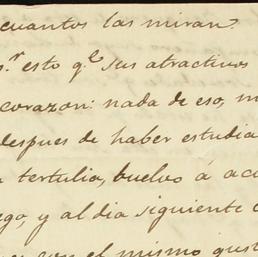 cuantos las miran?
s.r esto q.e sus atractivos
corazon: nada de eso, m
despues de haber estudia
tertulia, buelvo á aco
ego, y al dia siguiente
con el mismo gust